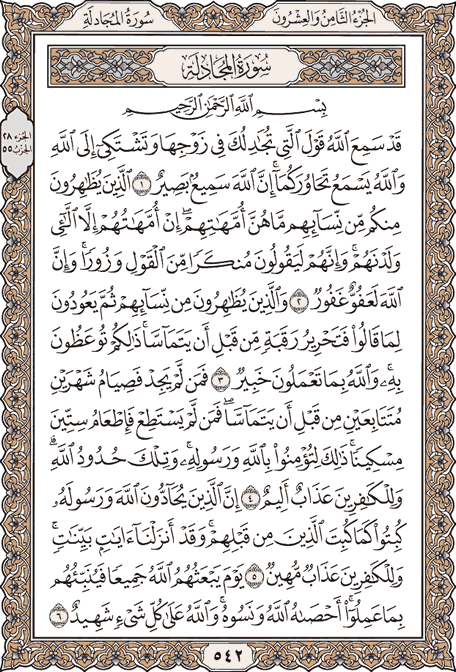 سُورَةُ المُجَادلَةِ
الجُزْءُ الثَّامِنُ وَالعِشْرُونَ
سُورَةُ المُجَادلَةِ
الجزء ٢٨
الحزب ٥٥
بِسْمِ اللَّهِ الرَّحْمَٰنِ الرَّحِيمِ
قَدْ سَمِعَ اللَّهُ قَوْلَ الَّتِي تُجَٰدِلُكَ فِي زَوْجِهَا وَتَشْتَكِيٓ إِلَى اللَّهِ
وَاللَّهُ يَسْمَعُ تَحَاوُرَكُمَآ ۚ إِنَّ اللَّهَ سَمِيعٌۢ بَصِيرٌ ١ الَّذِينَ يُظَٰهِرُونَ
مِنكُم مِّن نِّسَآئِهِم مَّا هُنَّ أُمَّهَٰتِهِمْ ۖ إِنْ أُمَّهَٰتُهُمْ إِلَّا الَّٰٓـِٔي
وَلَدْنَهُمْ ۚ وَإِنَّهُمْ لَيَقُولُونَ مُنكَرًا مِّنَ الْقَوْلِ وَزُورًا ۚ وَإِنَّ
اللَّهَ لَعَفُوٌّ غَفُورٌ ٢ وَالَّذِينَ يُظَٰهِرُونَ مِن نِّسَآئِهِمْ ثُمَّ يَعُودُونَ
لِمَا قَالُوا۟ فَتَحْرِيرُ رَقَبَةٍ مِّن قَبْلِ أَن يَتَمَآسَّا ۚ ذَٰلِكُمْ تُوعَظُونَ
بِهِۦ ۚ وَاللَّهُ بِمَا تَعْمَلُونَ خَبِيرٌ ٣ فَمَن لَّمْ يَجِدْ فَصِيَامُ شَهْرَيْنِ
مُتَتَابِعَيْنِ مِن قَبْلِ أَن يَتَمَآسَّا ۖ فَمَن لَّمْ يَسْتَطِعْ فَإِطْعَامُ سِتِّينَ
مِسْكِينًا ۚ ذَٰلِكَ لِتُؤْمِنُوا۟ بِاللَّهِ وَرَسُولِهِۦ ۚ وَتِلْكَ حُدُودُ اللَّهِ ۗ
وَلِلْكَٰفِرِينَ عَذَابٌ أَلِيمٌ ٤ إِنَّ الَّذِينَ يُحَآدُّونَ اللَّهَ وَرَسُولَهُۥ
كُبِتُوا۟ كَمَا كُبِتَ الَّذِينَ مِن قَبْلِهِمْ ۚ وَقَدْ أَنزَلْنَآ ءَايَٰتٍۭ بَيِّنَٰتٍ ۚ
وَلِلْكَٰفِرِينَ عَذَابٌ مُّهِينٌ ٥ يَوْمَ يَبْعَثُهُمُ اللَّهُ جَمِيعًا فَيُنَبِّئُهُم
بِمَا عَمِلُوٓا۟ ۚ أَحْصَىٰهُ اللَّهُ وَنَسُوهُ ۚ وَاللَّهُ عَلَىٰ كُلِّ شَيْءٍ شَهِيدٌ ٦
٥٤٢